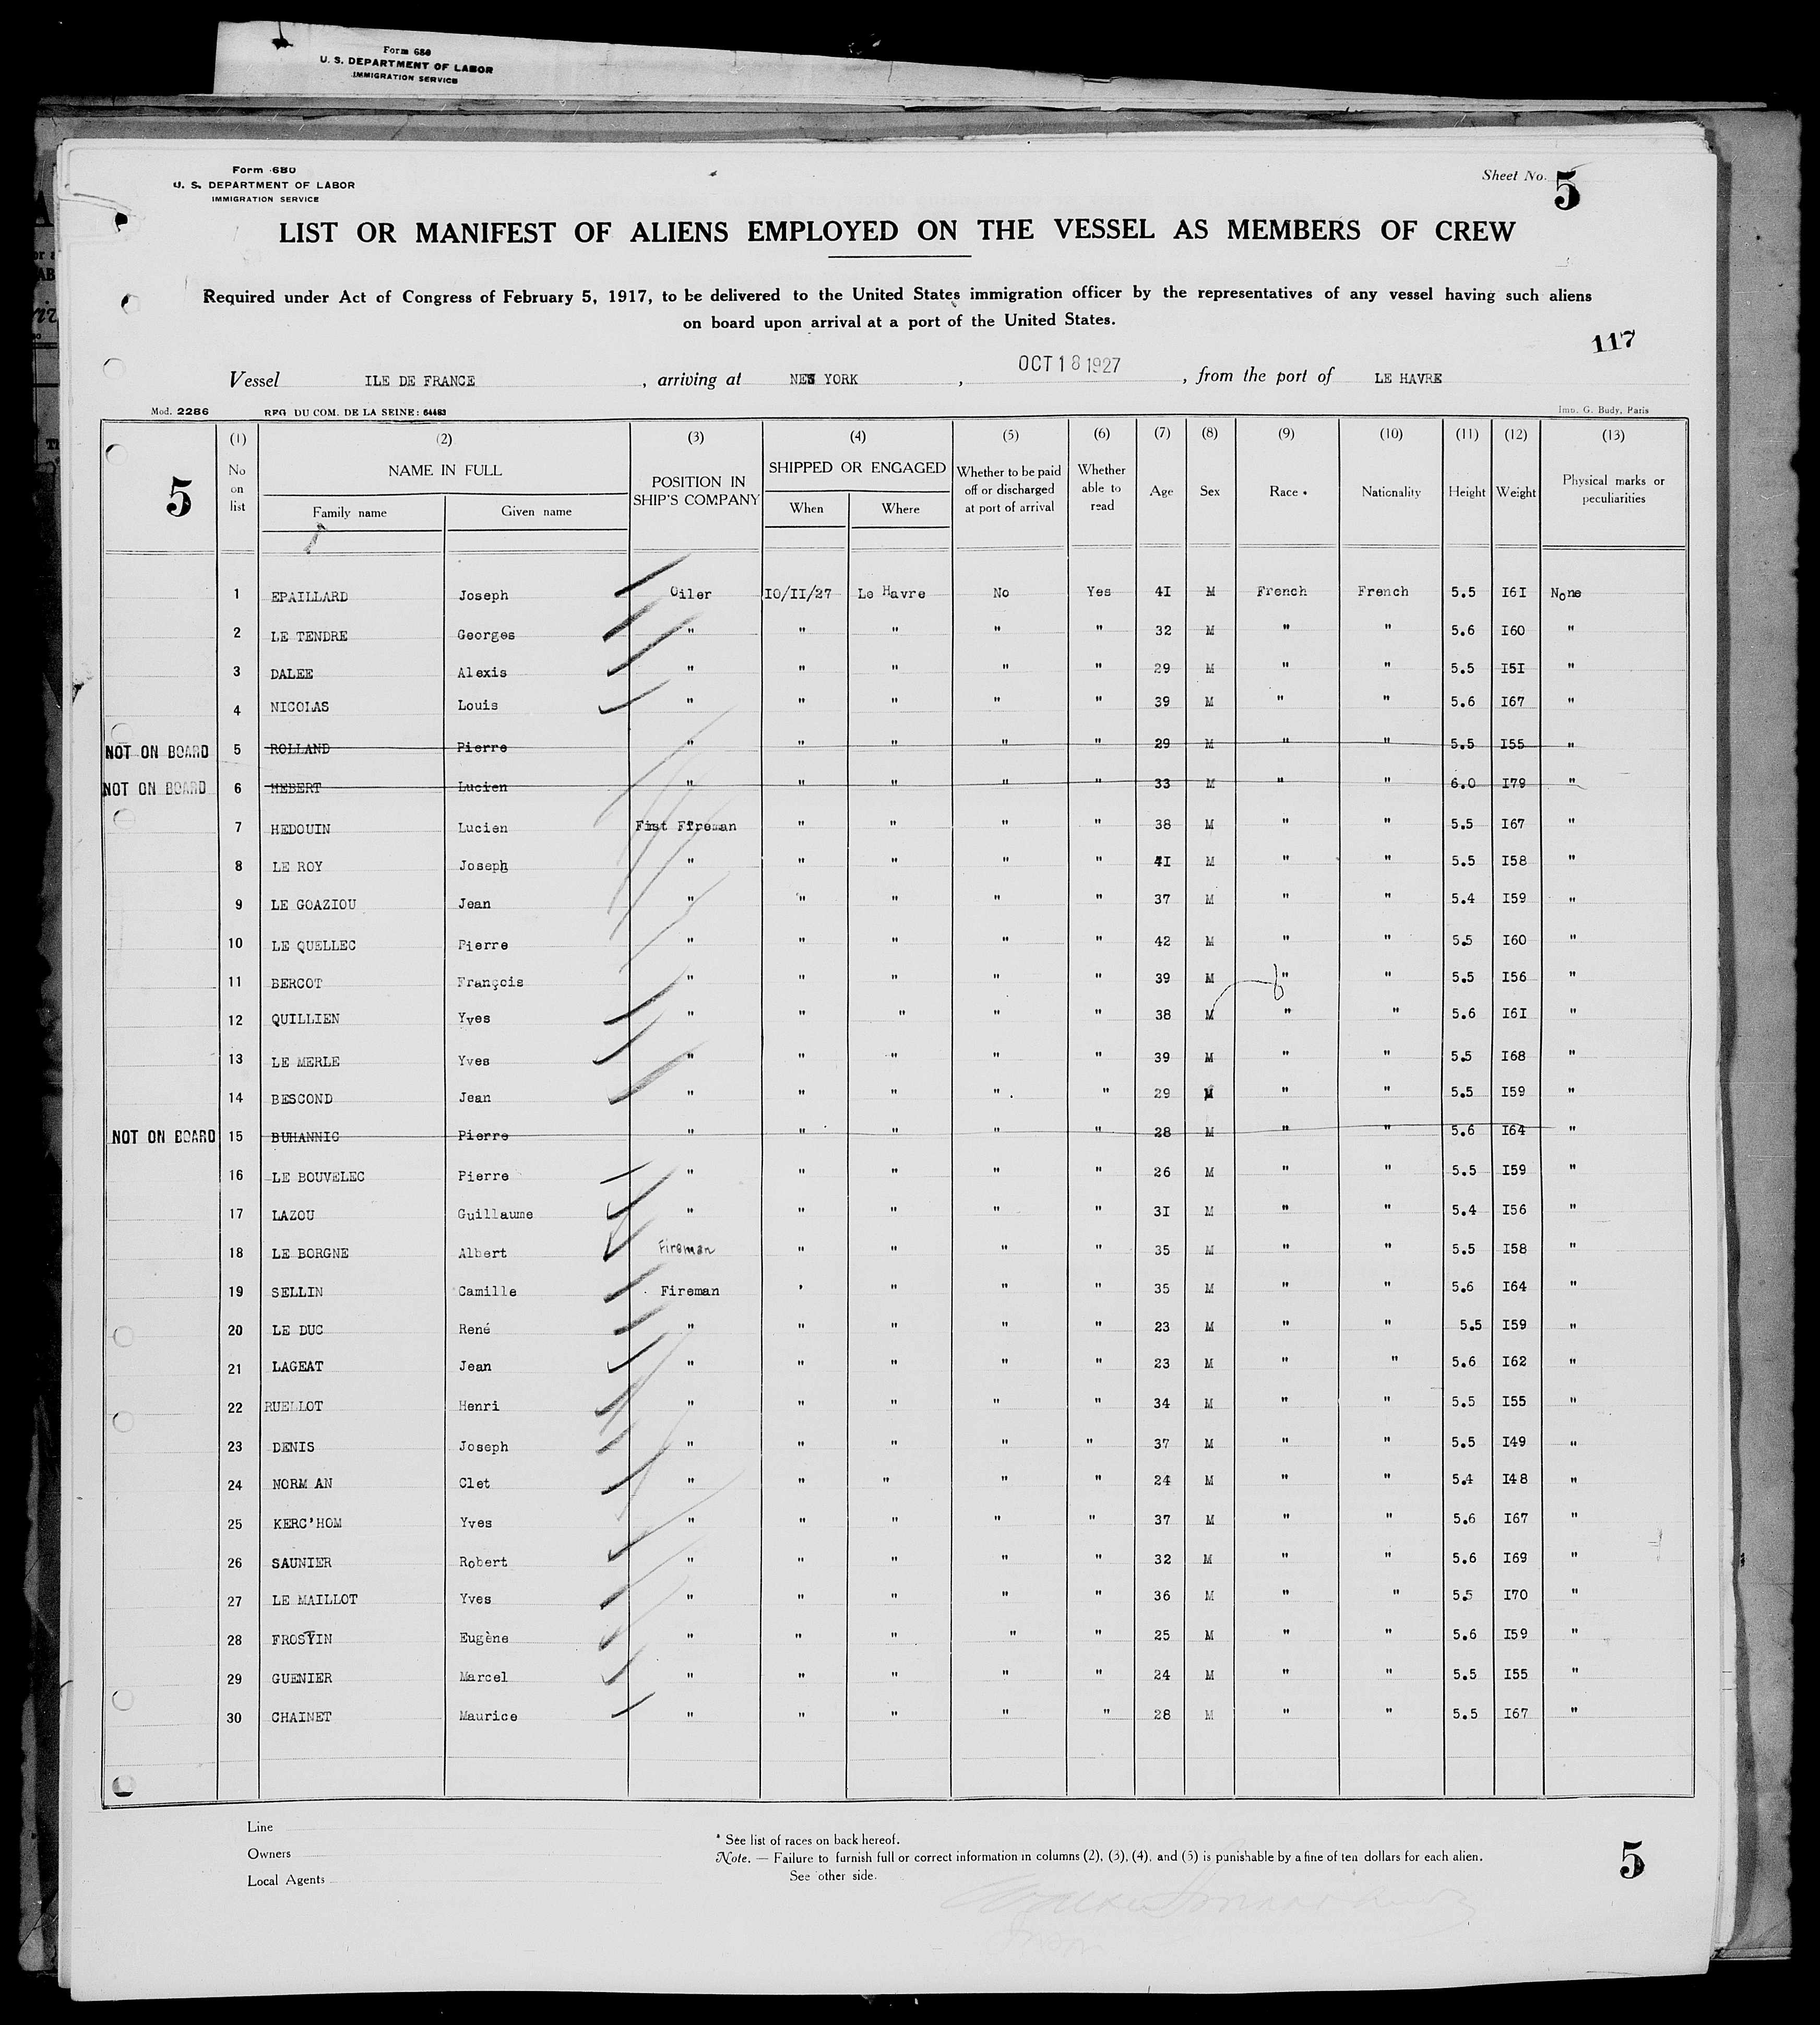 Form 680
U. S. DEPARTMENT OF LABOR
IMMIGRATION SERVICE
Form 680
U. S. DEPARTMENT OF LABOR
IMMIGRATION SERVICE
Sheet No. 5
LIST OR MANIFEST OF ALIENS EMPLOYED ON THE VESSEL AS MEMBERS OF CREW
Required under Act of Congress of February 5, 1917, to be delivered to the United States immigration officer by the representatives of any vessel having such aliens
on board upon arrival at a port of the United States.
117
Vessel ILE DE FRANCE , arriving at NEW YORK , OCT 18 1927 , from the port of LE HAVRE
Mod. 2286 REG DU COM. DE LA SEINE: 64483 Imp. G. Budy, Paris
5
(1) (2) (3) (4) (5) (6) (7) (8) (9) (10) (11) (12) (13)
No on list NAME IN FULL Family name Given name POSITION IN SHIP'S COMPANY SHIPPED OR ENGAGED When Where Whether to be paid off or discharged at port of arrival Whether able to read Age Sex Race * Nationality Height Weight Physical marks or peculiarities
1 EPAILLARD Joseph Oiler IO/II/27 Le Havre No Yes 4I M French French 5.5 I6I None
2 LE TENDRE Georges " " " " " 32 M " " 5.6 I60 "
3 DALEE Alexis " " " " " 29 M " " 5.5 I5I "
4 NICOLAS Louis " " " " " 39 M " " 5.6 I67 "
NOT ON BOARD 5 ROLLAND Pierre " " " " " 29 M " " 5.5 I55 "
NOT ON BOARD 6 HEBERT Lucien " " " " " 33 M " " 6.0 I79 "
7 HEDOUIN Lucien Fist Fireman " " " " 38 M " " 5.5 I67 "
8 LE ROY Joseph " " " " " 4I M " " 5.5 I58 "
9 LE GOAZIOU Jean " " " " " 37 M " " 5.4 I59 "
10 LE QUELLEC Pierre " " " " " 42 M " " 5.5 I60 "
11 BERCOT François " " " " " 39 M " " 5.5 I56 "
12 QUILLIEN Yves " " " " " 38 M " " 5.6 I6I "
13 LE MERLE Yves " " " " " 39 M " " 5.5 I68 "
14 BESCOND Jean " " " " " 29 M " " 5.5 I59 "
NOT ON BOARD 15 BUHANNIC Pierre " " " " " 28 M " " 5.6 I64 "
16 LE BOUVELEC Pierre " " " " " 26 M " " 5.5 I59 "
17 LAZOU Guillaume " " " " " 3I M " " 5.4 I56 "
18 LE BORGNE Albert Fireman " " " " 35 M " " 5.5 I58 "
19 SELLIN Camille Fireman ' " " " 35 M " " 5.6 I64 "
20 LE DUC René " " " " " 23 M " " 5.5 I59 "
21 LAGEAT Jean " " " " " 23 M " " 5.6 I62 "
22 RUELLOT Henri " " " " " 34 M " " 5.5 I55 "
23 DENIS Joseph " " " " " 37 M " " 5.5 I49 "
24 NORM AN Clet " " " " " 24 M " " 5.4 I48 "
25 KERC'HOM Yves " " " " " 37 M " " 5.6 I67 "
26 SAUNIER Robert " " " " " 32 M " " 5.6 I69 "
27 LE MAILLOT Yves " " " " " 36 M " " 5.5 I70 "
28 FROSTIN Eugène " " " " " 25 M " " 5.6 I59 "
29 GUENIER Marcel " " " " " 24 M " " 5.5 I55 "
30 CHAINET Maurice " " " " " 28 M " " 5.5 I67 "
Line
Owners
Local Agents
* See list of races on back hereof.
Note. — Failure to furnish full or correct information in columns (2), (3), (4), and (5) is punishable by a fine of ten dollars for each alien.
See other side.
5